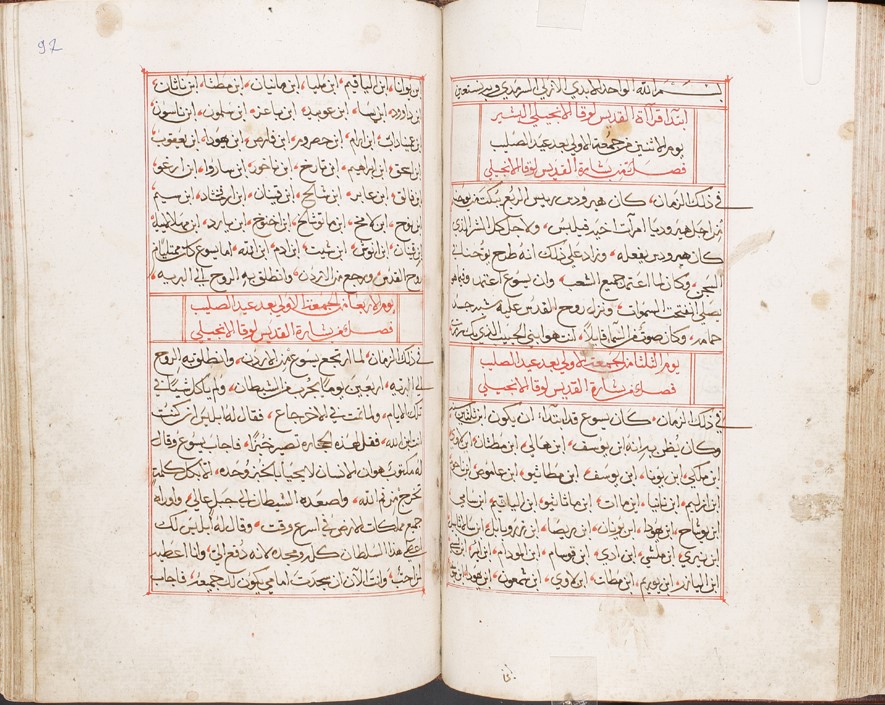 بسم الله الواحد الابدي الازلي السرمدي وبه نستعين
ابتدا قراة القديس لوقا الانجيلي البشير
يوم الاثنين من جمعة الاولى بعد عيد الصليب
فصل من بشارة القديس لوقا الانجيلي
في ذلك الزمان، كان هيرودس رييس الربع يبكته يوحنا
من اجل هيروديا امرات اخيه فيلبس، ولاجل كل الشر الذي
كان هيرودس يفعله، وزاد على ذلك انه طرح يوحنا في
السجن، وكان لما اعتمد جميع الشعب، وان يسوع اعتمد وفيما هو
يصلي انفتحت السموات، ونزل روح القدس عليه شبه جسد
حمامه، وكان صوت من السما قايلاً، انت هو ابني الحبيب الذي بك سررت
يوم الثلثا من الجمعة الاولى بعد عيد الصليب
فصل من بشارة القديس لوقا الانجيلي
في ذلك الزمان، كان يسوع قد ابتدا، ان يكون ابن ثلثين سنه
وكان يُظن به انه ابن يوسف، ابن هالي، ابن مطثان، ابن لاوي
ابن ملكي، ابن يونا، ابن يوسف، ابن مطاثيو، ابن عاموص، ابن ناحوم
ابن ماات، ابن ماثاثيو، ابن شامي
ابن يوتاح، ابن يهودا، ابن يونان، ابن ريصا، ابن زروبابل، ابن سالاثايل
ابن نيري، ابن ملشي، ابن ادي، ابن قوسام، ابن المودام، ابن اير
ابن اليازر، ابن يوريم، ابن مطات، ابن لاوي، ابن شمعون، ابن يهودا
92
ابن يونا، ابن الياقيم، ابن مليا، ابن ماينان، ابن مطثا، ابن ناثان
ابن داوود، ابن يسا، ابن عوبيد، ابن باعز، ابن سلمون، ابن ناسون
ابن عميناداب، ابن ارام، ابن حصرون، ابن فارص، ابن يهودا، ابن يعقوب
ابن اسحق، ابن ابراهيم، ابن تارخ، ابن ناخور، ابن ساروا، ابن ارغو
ابن فالق، ابن عابر، ابن شالح، ابن قينان، ابن ارفخشاد، ابن سيم
ابن نوح، ابن لامخ، ابن ماتوشالخ، ابن اخنوخ، ابن يارد، ابن مهلاليل
ابن قينان، ابن انوش، ابن شيت، ابن ادم، ابن الله، اما يسوع كان ممتليا من
روح القدس، ورجع من الاردن، وانطلق به الروح الى البريه
يوم الاربعا من الجمعة الاولى بعد عيد الصليب
فصل من بشارة القديس لوقا الانجيلي
في ذلك الزمان، لما ارجع يسوع من الاردن، وانطلق به الروح
الى البريه، اربعين يوماً يجرب من الشيطان، ولم ياكل شيئاً في
تلك الايام، ولما تمت في الاخر جاع، فقال له ابليس ان كنت
انت ابن الله، فقل لهذه الحجاره تصير خبزا، فاجاب يسوع وقال
له مكتوب هو ان الانسان لا يحيا بالخبز وحده، الا بكل كلمه
تخرج من فم الله، واصعده الشيطان الى جبل عالي، واوراه
جميع مملكات الارض في اسرع وقت، وقال له ابليس لك
اعطي هذا السلطان كله ومجده لانه دفع الي، وانا اعطيه
لمن احب، وانت الان ان سجدت امامي يكون لك جميعه، فاجاب